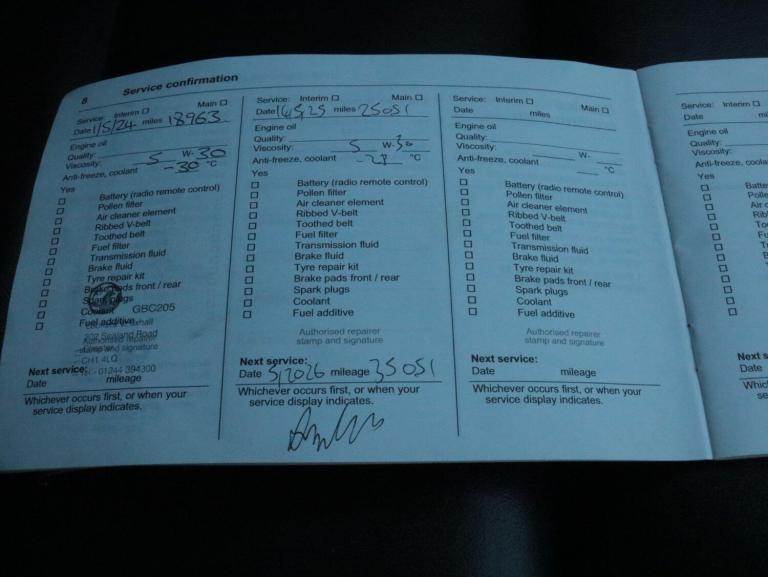 8 Service confirmation
Service: Interim Main
Date 1/5/24 miles 18963
Engine oil
Quality:
Viscosity: 5 W- 30
Anti-freeze, coolant -30 °C
Yes
Battery (radio remote control)
Pollen filter
Air cleaner element
Ribbed V-belt
Toothed belt
Fuel filter
Transmission fluid
Brake fluid
Tyre repair kit
Brake pads front / rear
Spark plugs
Coolant GBC205
Fuel additive
Sealand Road
Authorised repairer
stamp and signature
CH1 4LQ
Tel - 01244 394300
Next service:
Date mileage
Whichever occurs first, or when your
service display indicates.
Service: Interim Main
Date 16/5/25 miles 25051
Engine oil
Quality:
Viscosity: 5 W-30
Anti-freeze, coolant °C
Yes
Battery (radio remote control)
Pollen filter
Air cleaner element
Ribbed V-belt
Toothed belt
Fuel filter
Transmission fluid
Brake fluid
Tyre repair kit
Brake pads front / rear
Spark plugs
Coolant
Fuel additive
Authorised repairer
stamp and signature
Next service:
Date 5/2026 mileage 35051
Whichever occurs first, or when your
service display indicates.
Service: Interim Main
Date miles
Engine oil
Quality:
Viscosity: W-
Anti-freeze, coolant °C
Yes
Battery (radio remote control)
Pollen filter
Air cleaner element
Ribbed V-belt
Toothed belt
Fuel filter
Transmission fluid
Brake fluid
Tyre repair kit
Brake pads front / rear
Spark plugs
Coolant
Fuel additive
Authorised repairer
stamp and signature
Next service:
Date mileage
Whichever occurs first, or when your
service display indicates.
Service: Interim
Date
Engine oil
Quality:
Viscosity:
Anti-freeze,
Yes
Next
Date